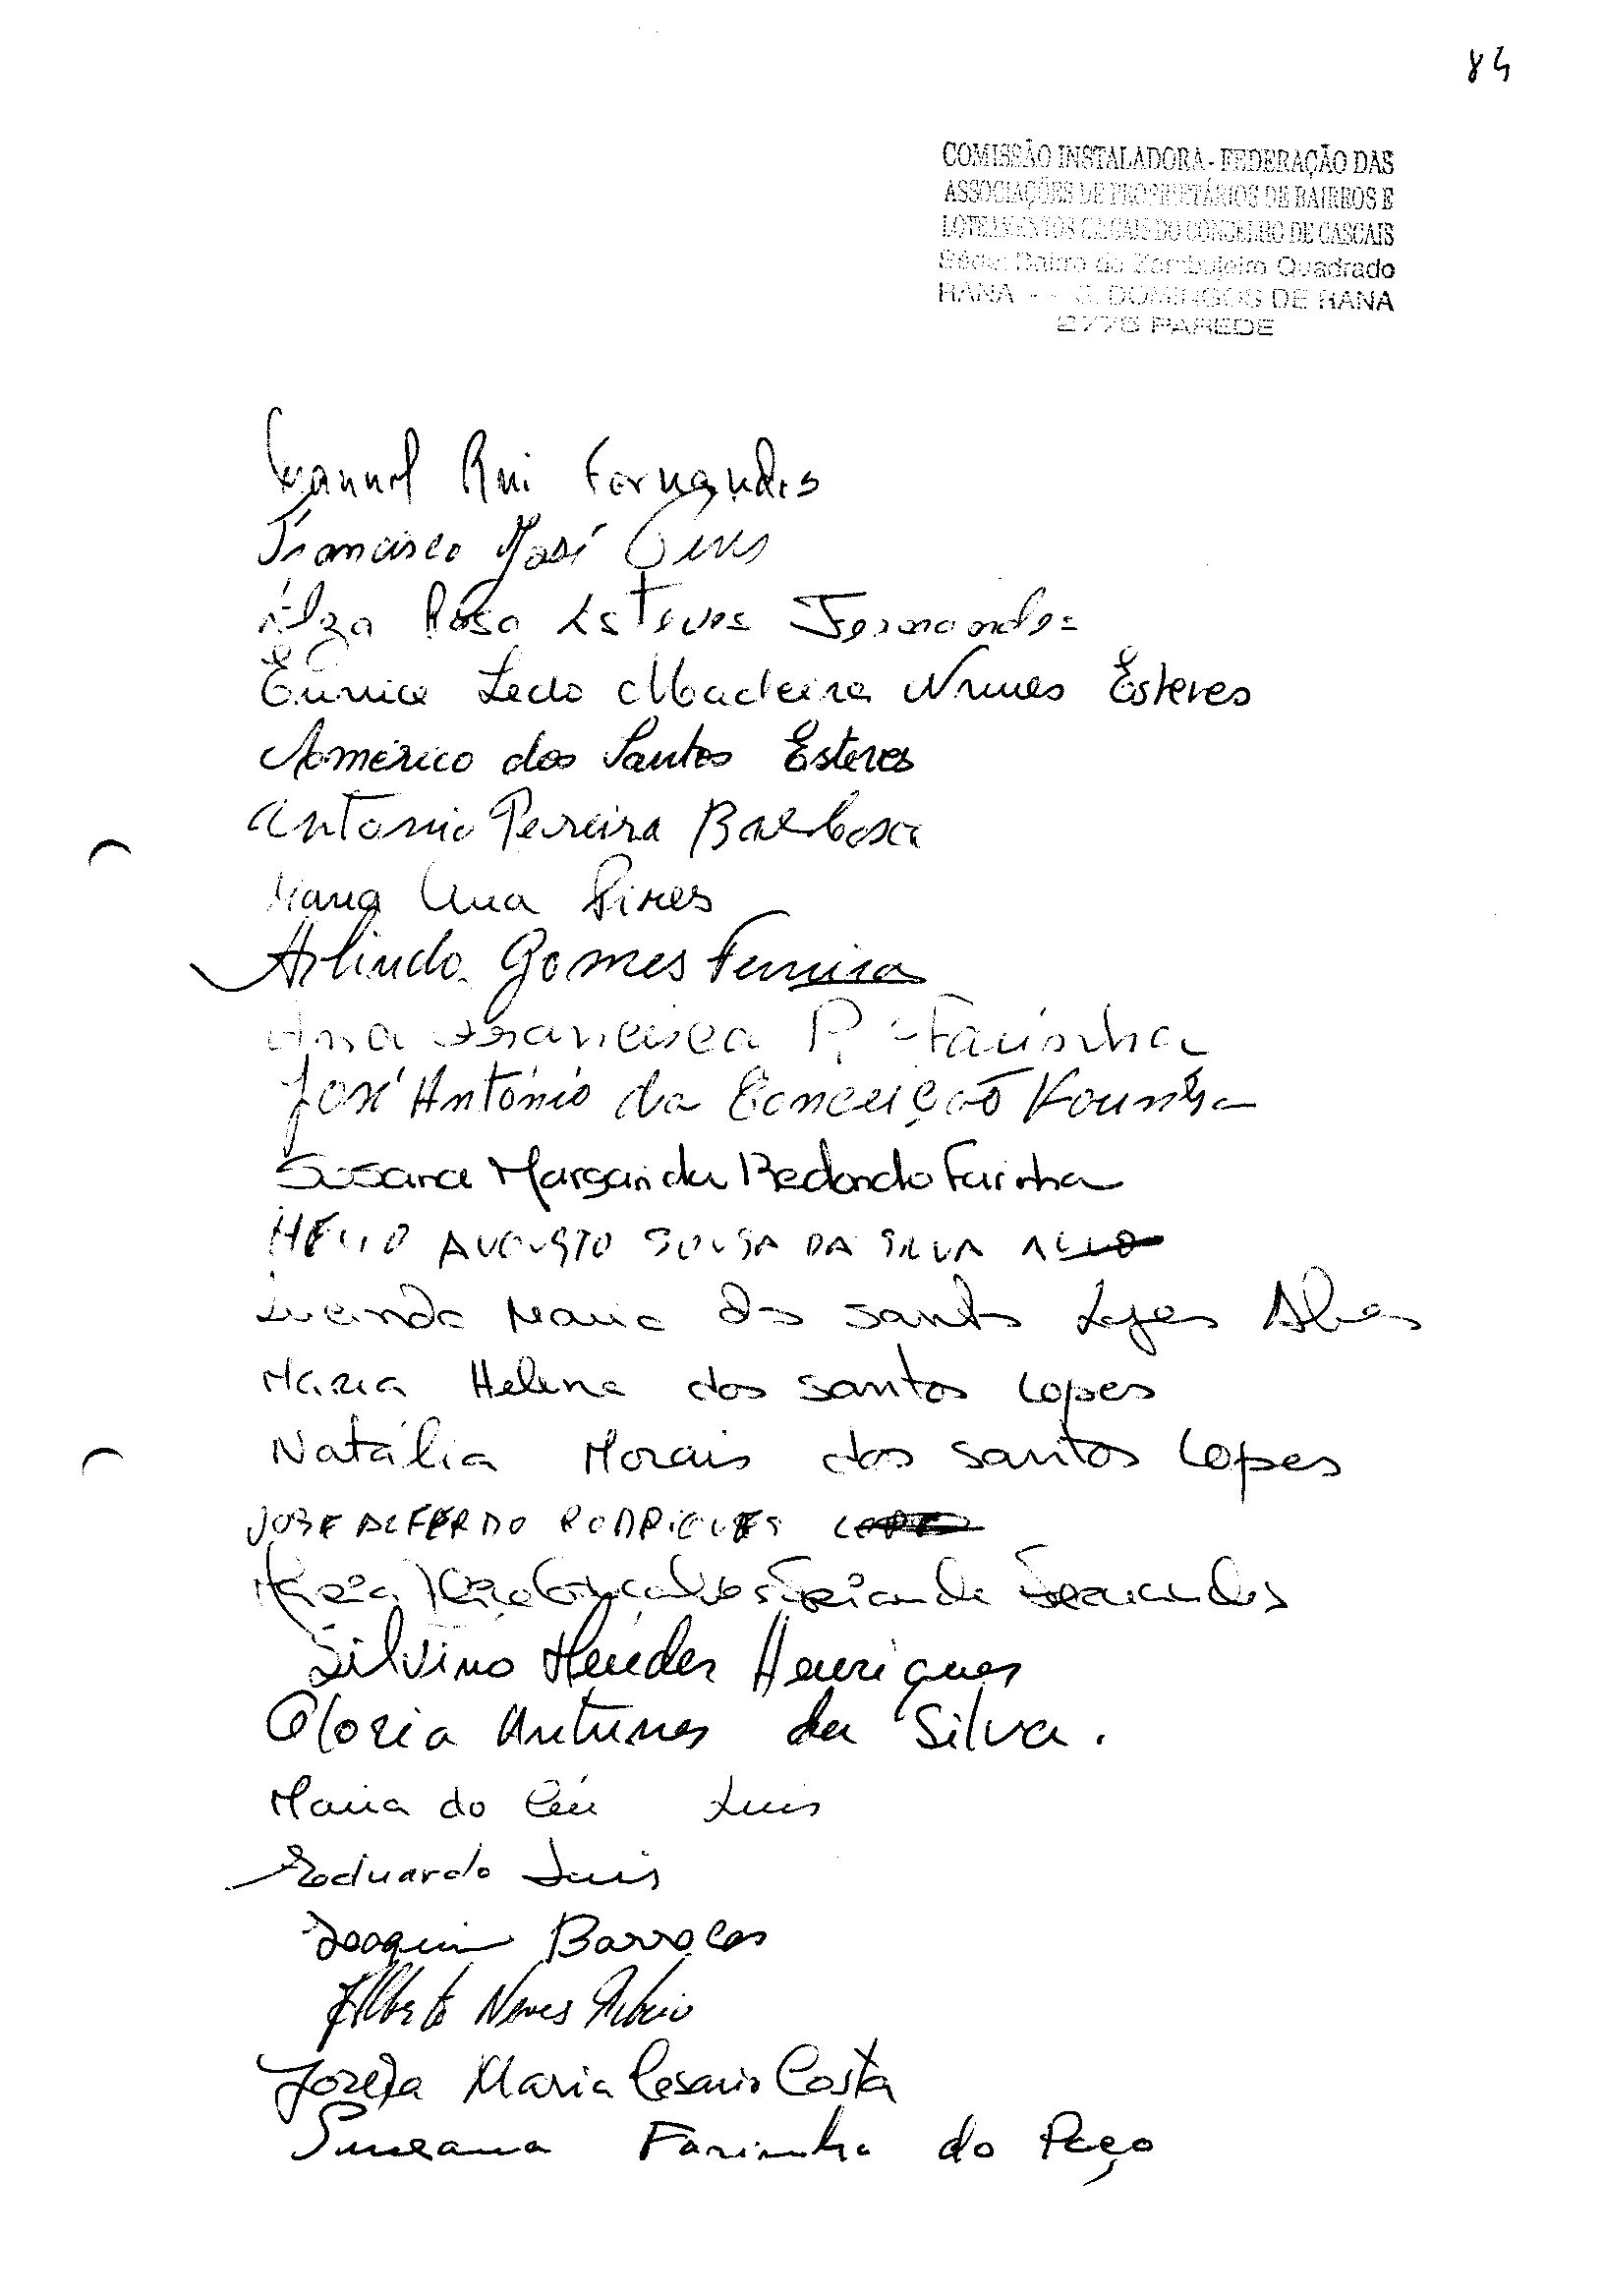 84
COMISSÃO INSTALADORA - FEDERAÇÃO DAS
ASSOCIAÇÕES DE PROPRIETÁRIOS DE BAIRROS E
LOTEAMENTOS ILEGAIS DO CONCELHO DE CASCAIS
Séde: Bairro do Zambujeiro Quadrado
RANA - - S. DOMINGOS DE RANA
2775 PAREDE
Manuel Rui Fernandes
Francisco José Pires
Elza Rosa Esteves Fernandes
Eunice Ledo Madeira Nunes Esteves
Américo dos Santos Esteves
António Pereira Barbosa
Maria Ana Pires
Arlindo Gomes Ferreira
Ana Francisca P. Farinha
José António da Conceição Farinha
Susana Margarida Redondo Farinha
HELIO AUGUSTO SOUSA DA SILVA
Lucinda Maria dos Santos Lopes Alves
Maria Helena dos Santos Lopes
Natália Morais dos Santos Lopes
JOSE ALFREDO RODRIGUES LOPES
Maria Gonçalves Fernandes
Silvino Mendes Henriques
Gloria Antunes da Silva.
Maria do Céu Luis
Eduardo Luis
Joaquim Barrocas
Alberto Neves Ribeiro
Maria Cesario Costa
Farinha do Paço